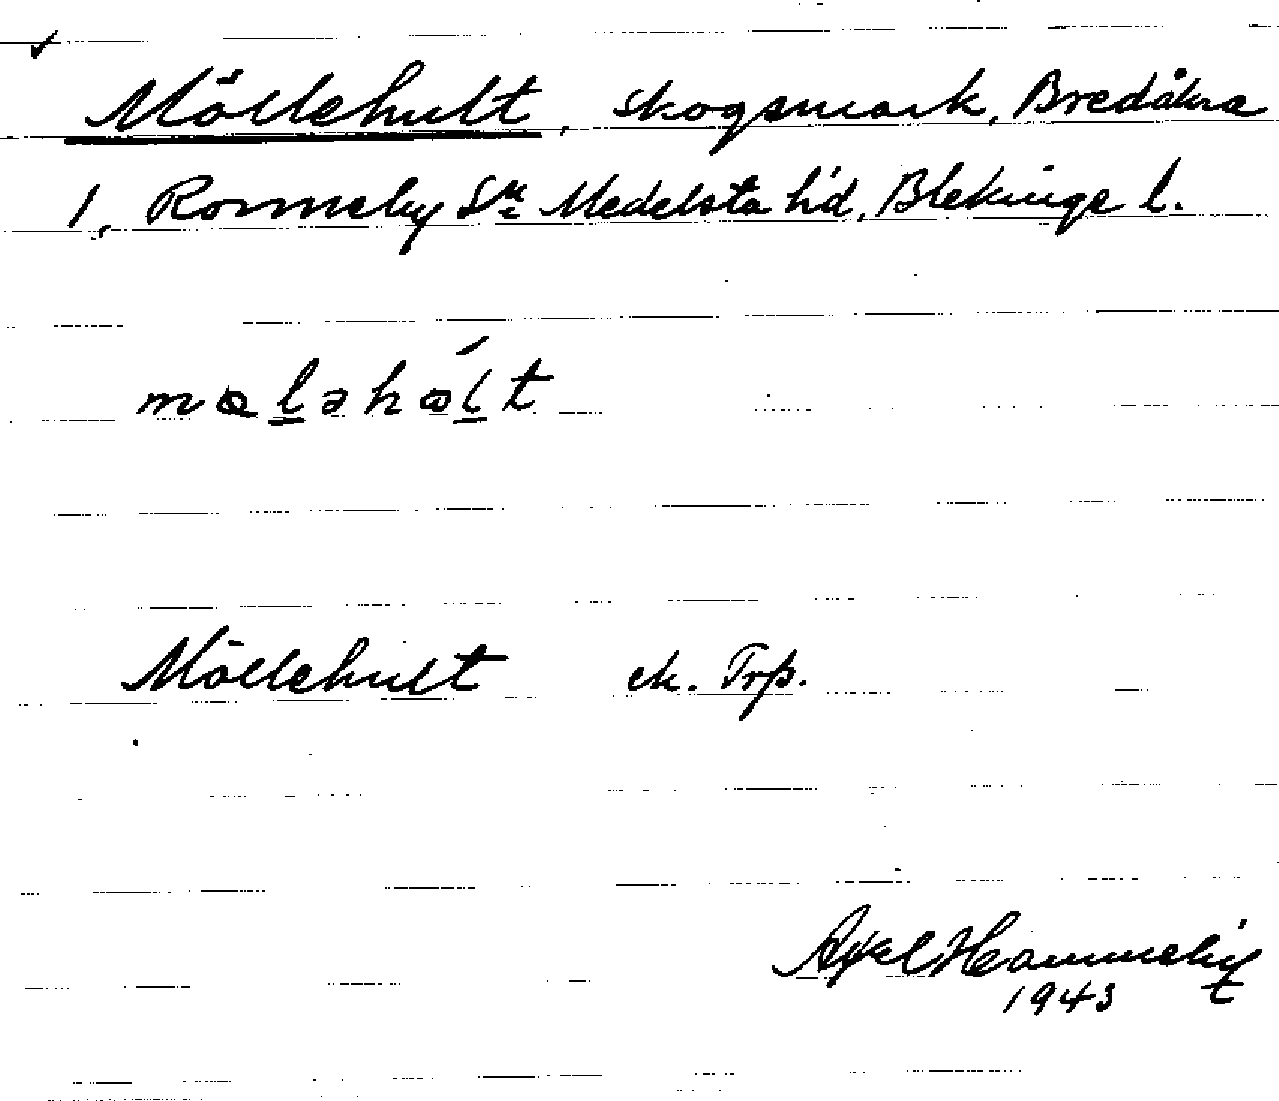 Möllehult, skogsmark, Bredåkra
1, Ronneby Sn Medelsta hd, Blekinge l.
Möllehult ek. Trp.
Axel Hammelin
1943